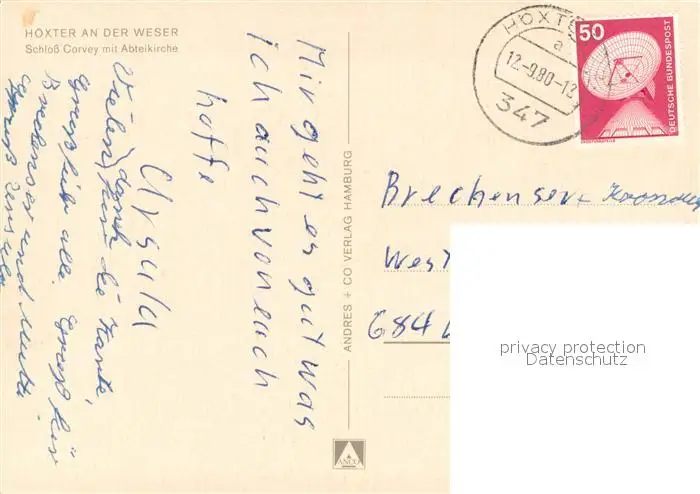 HÖXTER AN DER WESER
Schloß Corvey mit Abteikirche
Mir geht es gut was
ich auch von euch
hoffe
Ursula
Vielen Dank
für die Karte,
Grüße alle. Gruß für
und Mutti
Gruß
ANDRES + CO VERLAG HAMBURG
ANCO
HÖXTER
a
12.-9.80-12
347
50
DEUTSCHE BUNDESPOST
West
684
privacy protection
Datenschutz